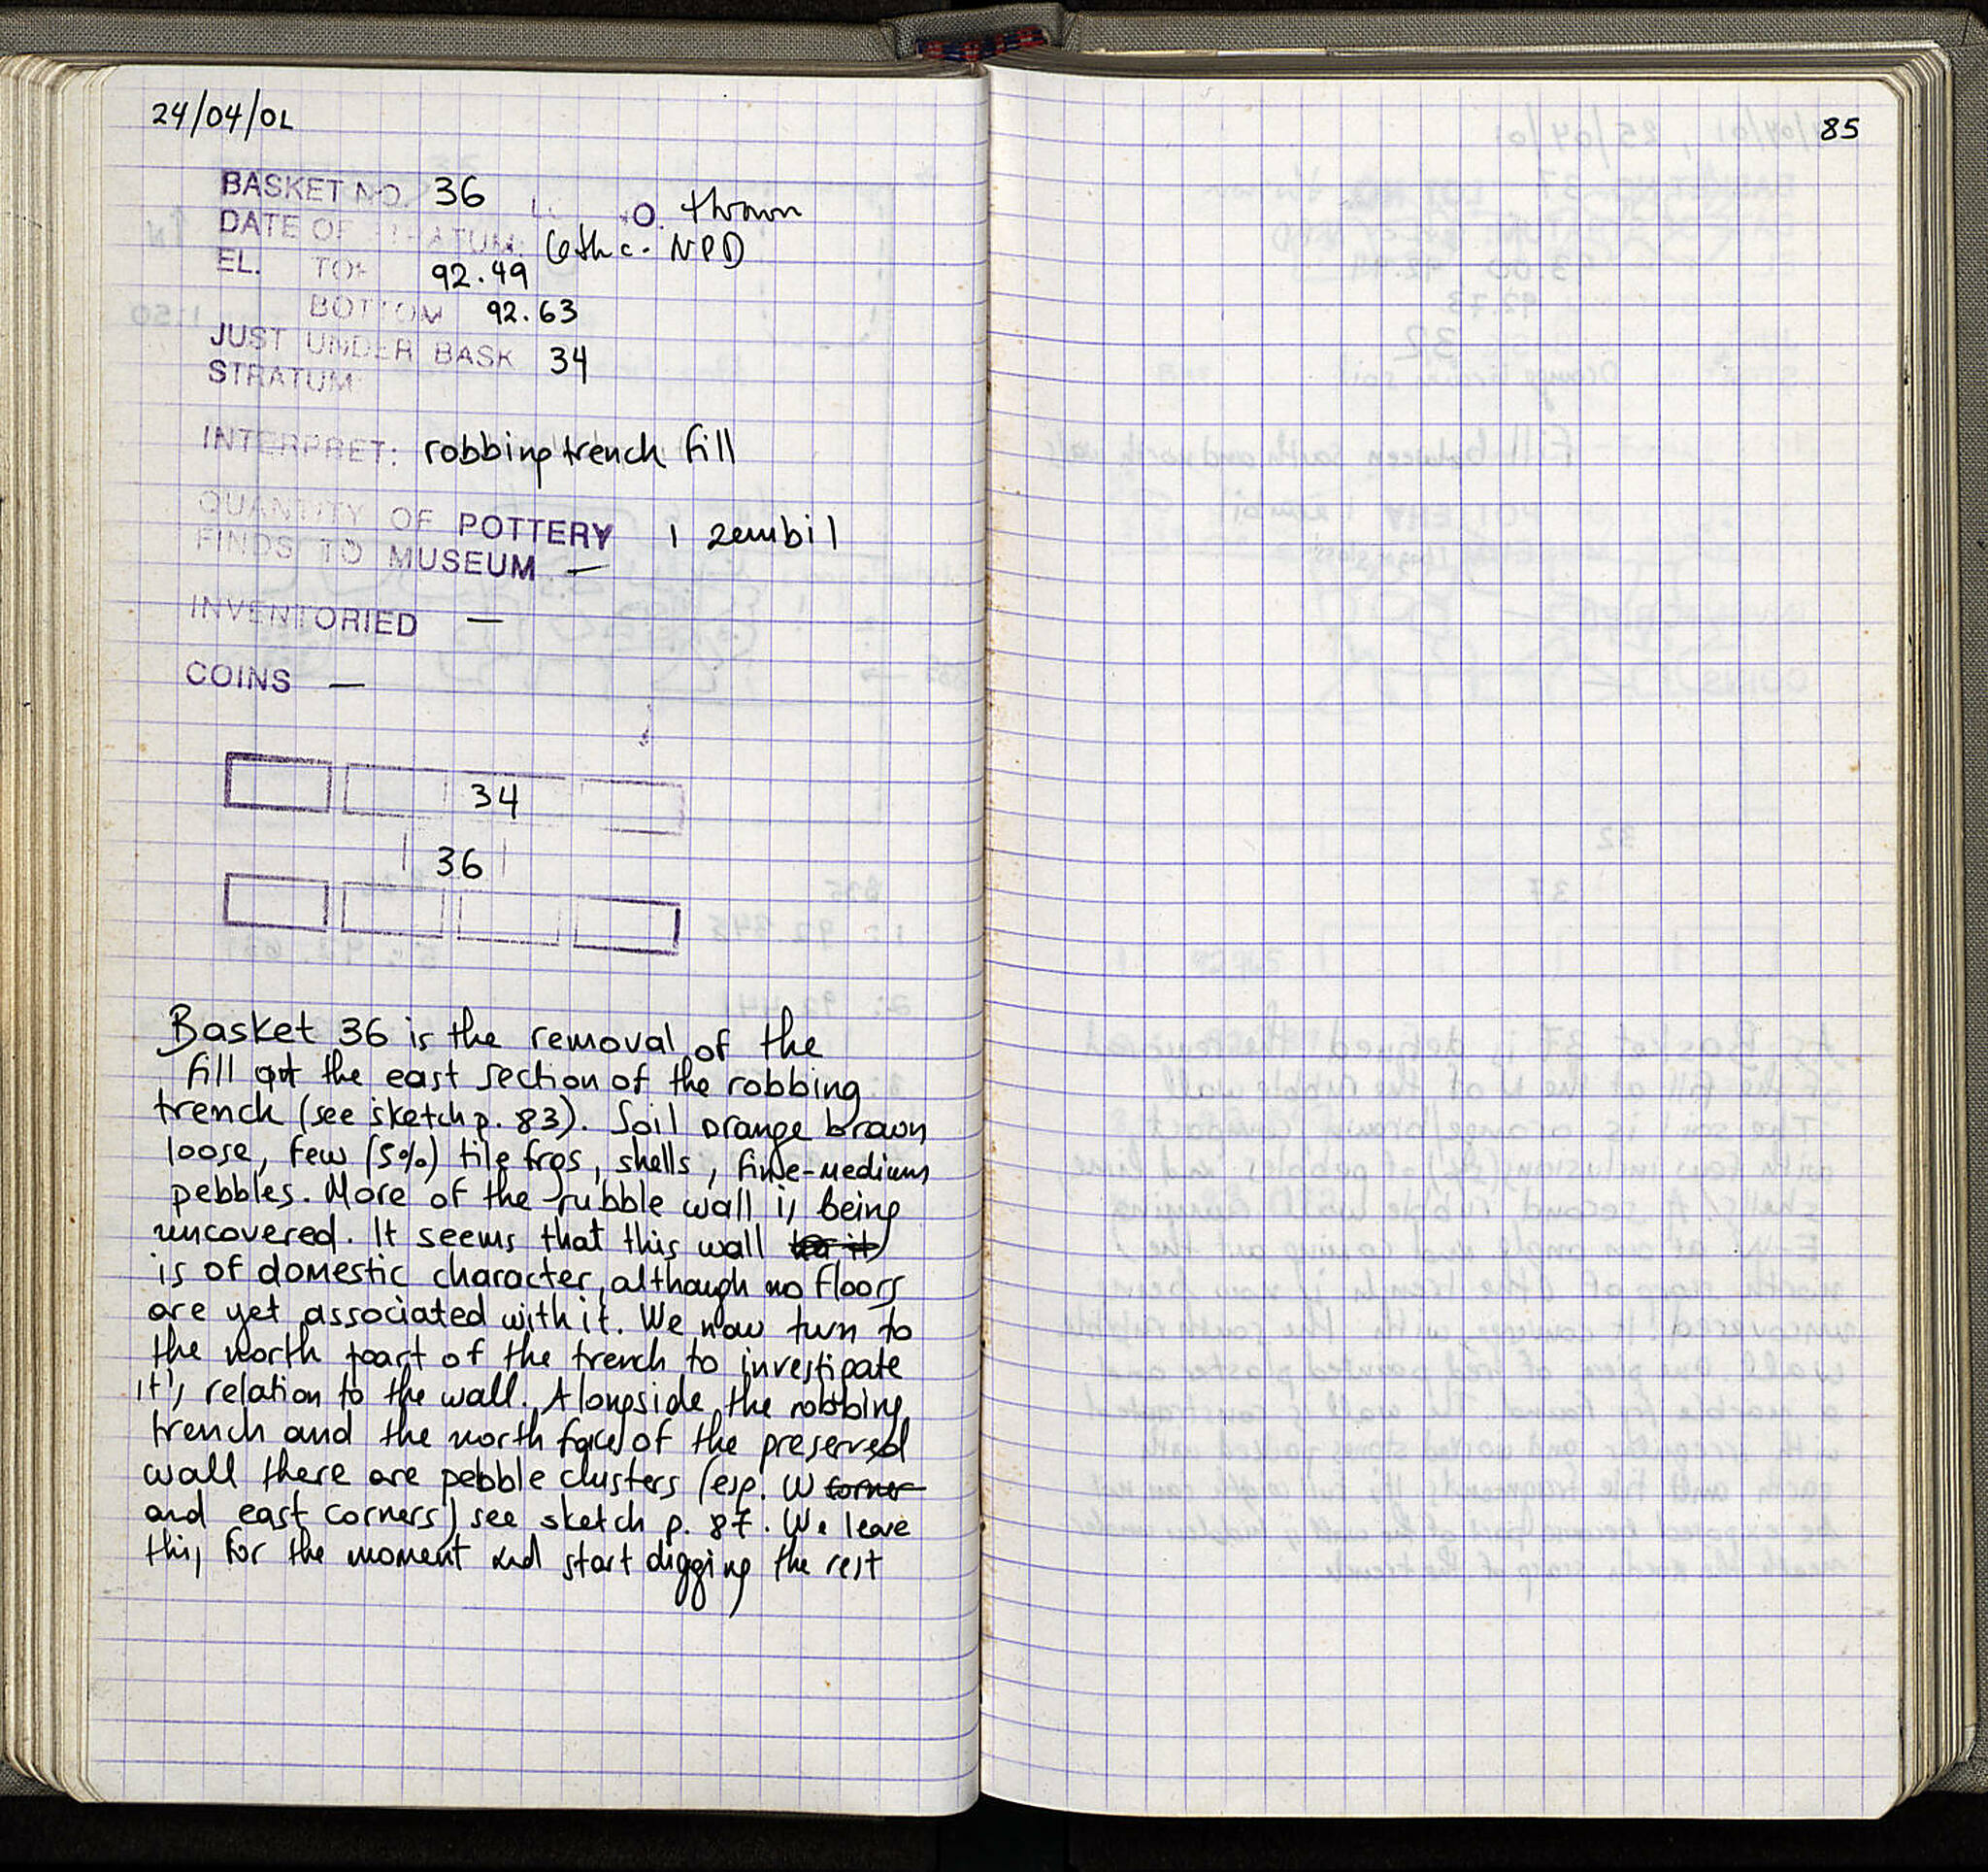 24/04/01
BASKET NO. 36 NO. thrown
DATE OF STRATUM: 6th c. NPD
EL. TOP 92.49
BOTTOM 92.63
JUST UNDER BASK 34
STRATUM
INTERPRET: robbing trench fill
QUANTITY OF POTTERY 1 zembil
FINDS TO MUSEUM —
INVENTORIED —
COINS —
34
36
Basket 36 is the removal of the
fill at the east section of the robbing
trench (see sketch p. 83). Soil orange brown
loose, few (5%) tile frgs, shells, fine-medium
pebbles. More of the rubble wall is being
uncovered. It seems that this wall
is of domestic character, although no floors
are yet associated with it. We now turn to
the north part of the trench to investigate
it's relation to the wall. Alongside the robbing
trench and the north face of the preserved
wall there are pebble clusters (esp. W corner
and east corners) see sketch p. 87. We leave
this for the moment and start digging the rest
85